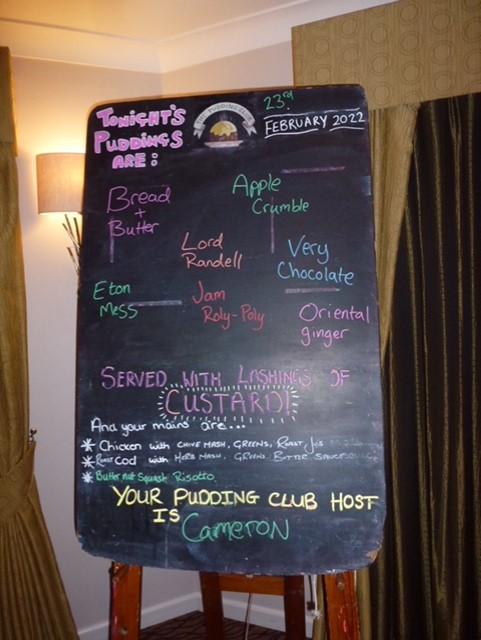 TONIGHT'S
PUDDINGS
ARE:
PUDDING CLUB
23rd
FEBRUARY 2022
Bread
+
Butter
Apple
Crumble
Lord
Randell
Very
Chocolate
Eton
Mess
Jam
Roly-Poly
Oriental
ginger
SERVED WITH LASHINGS OF
CUSTARD!
And your mains are...
* Chicken with CHIVE MASH, GREENS, ROAST, Jus
* ROAST Cod with HERB MASH, GREENS, BUTTER SAUCE
* Butternut Squash Risotto
YOUR PUDDING CLUB HOST
IS
CAMERON